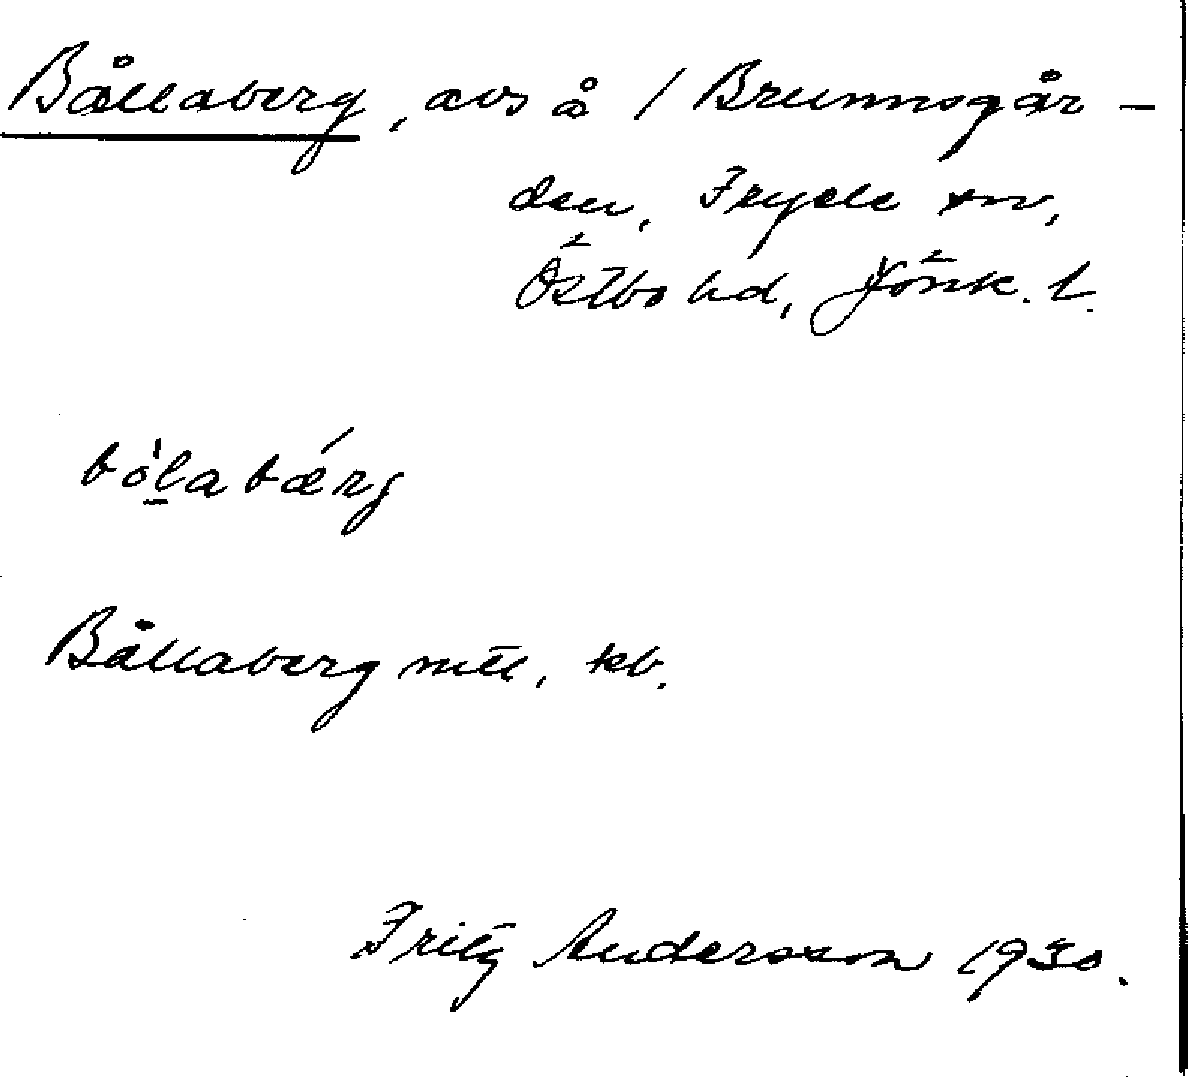 Bållaberg, avs å 1 Brunnsgår-
den, Fryele sn,
Östbo hd, Jönk. l.
bòlabǽrg
Bållaberg mtl, kb.
Fritz Andersson 1930.